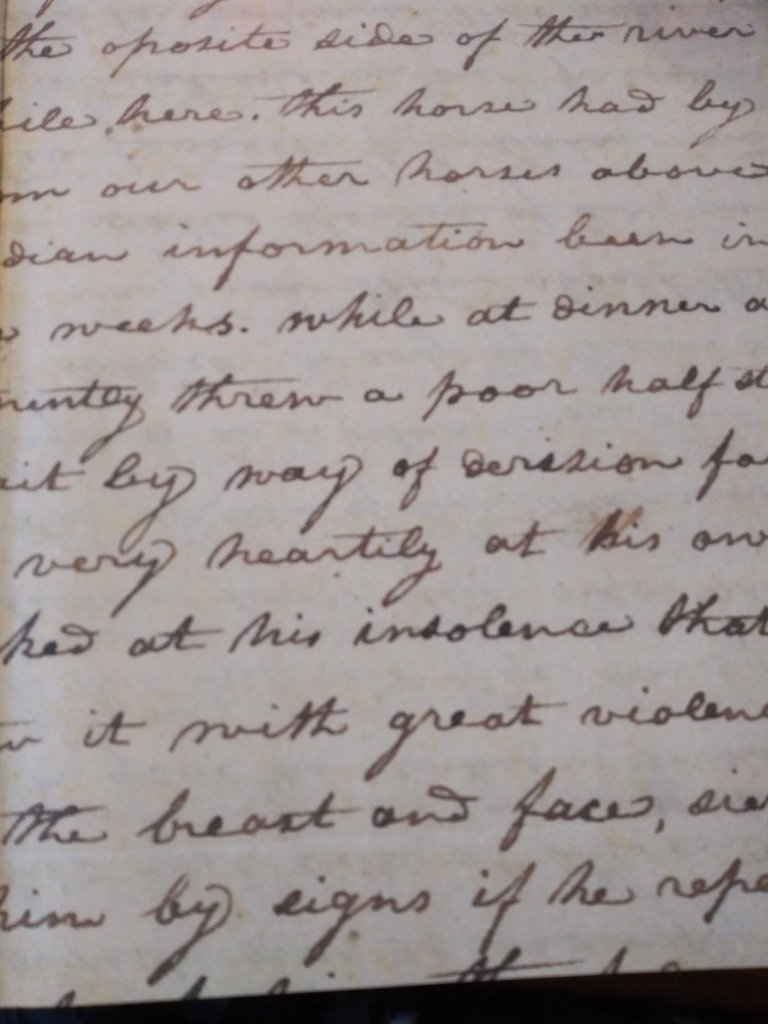 the oposite side of the river
ile here. this horse had by
m our other horses above
dian information been in
weeks. while at dinner a
nuntly threw a poor half st
it by way of derision fo
very heartily at his ow
ked at his insolence that
w it with great violenc
the breast and face, sie
him by signs if he repe